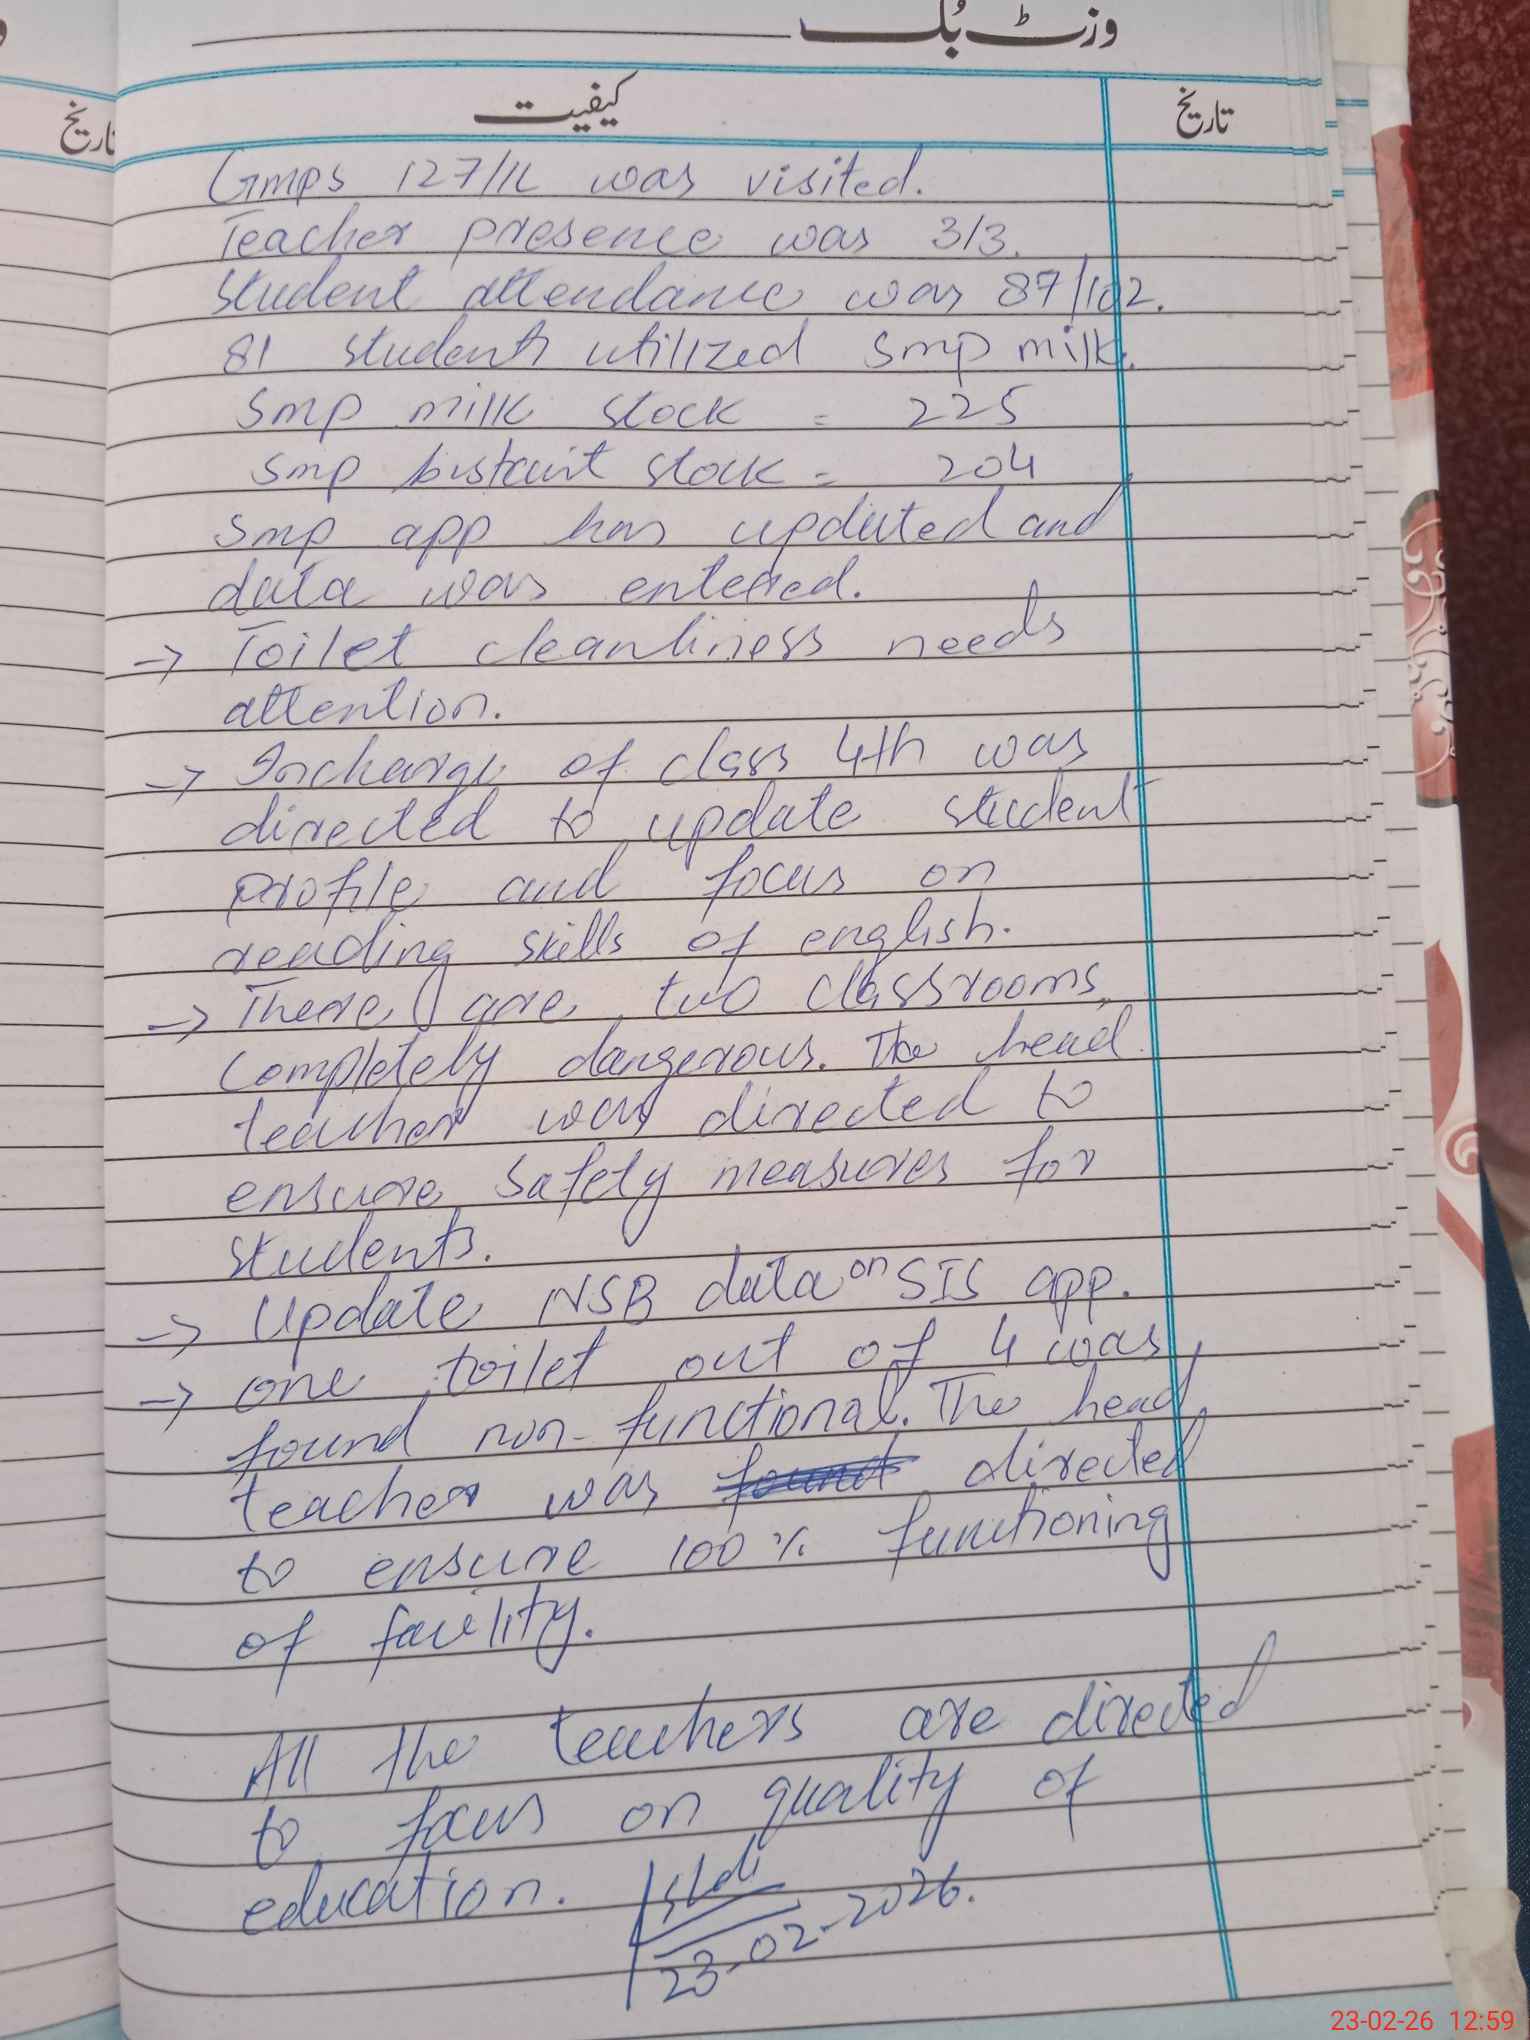 وزٹ بُک
کیفیت
تاریخ
تاریخ
Gmps 127/1L was visited.
Teacher presence was 3/3.
Student attendance was 87/102.
81 students utilized smp milk.
Smp milk stock = 225
Smp bistcuit stock = 204
Smp app has updated and
data was entered.
→ Toilet cleanliness needs
attention.
→ Incharge of class 4th was
directed to update student
profile and focus on
reading skills of english.
→ There are two classrooms
completely dangerous. The head
teacher was directed to
ensure safety measures for
students.
→ Update NSB data on SIS app.
→ one toilet out of 4 was
found non-functional. The head
teacher was directed
to ensure 100% functioning
of facility.
All the teachers are directed
to focus on quality of
education.
23-02-2026.
23-02-26 12:59